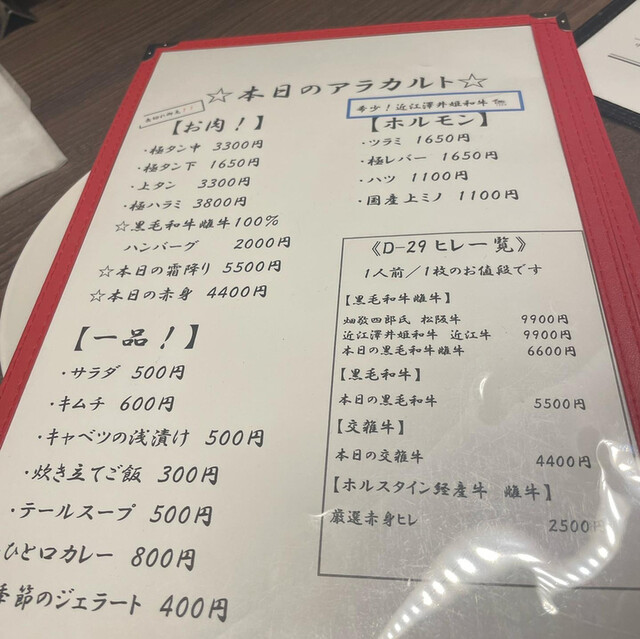 ☆本日のアラカルト☆
希少！近江澤井姫和牛
【お肉！】
・極タン中 3300円
・極タン下 1650円
・上タン 3300円
・極ハラミ 3800円
☆黒毛和牛雌牛100%
ハンバーグ 2000円
☆本日の霜降り 5500円
☆本日の赤身 4400円
【一品！】
・サラダ 500円
・キムチ 600円
・キャベツの浅漬け 500円
・炊き立てご飯 300円
・テールスープ 500円
ひと口カレー 800円
季節のジェラート 400円
【ホルモン】
・ツラミ 1650円
・極レバー 1650円
・ハツ 1100円
・国産上ミノ 1100円
《D-29 ヒレ一覧》
1人前／1枚のお値段です
【黒毛和牛雌牛】
畑敬四郎氏 松阪牛 9900円
近江澤井姫和牛 近江牛 9900円
本日の黒毛和牛雌牛 6600円
【黒毛和牛】
本日の黒毛和牛 5500円
【交雑牛】
本日の交雑牛 4400円
【ホルスタイン経産牛 雌牛】
厳選赤身ヒレ 2500円